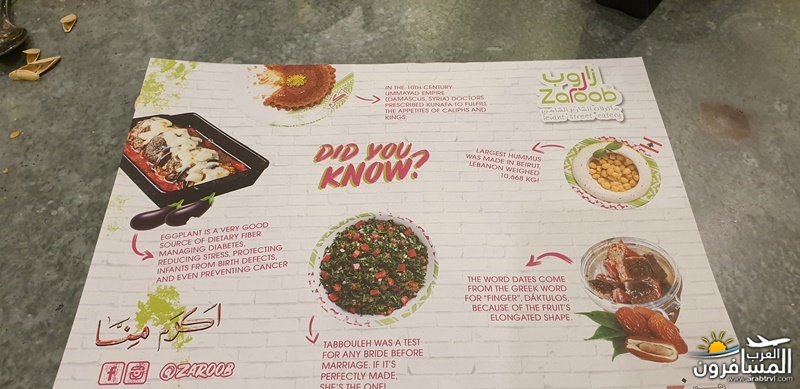 IN THE 10TH CENTURY
UMMAYAD EMPIRE
(DAMASCUS, SYRIA) DOCTORS
PRESCRIBED KUNAFA TO FULFILL
THE APPETITES OF CALIPHS AND
KINGS.
زاروب
Zaroob
levant street eatery
DID YOU
KNOW?
LARGEST HUMMUS
WAS MADE IN BEIRUT,
LEBANON WEIGHED
10,668 KG!
EGGPLANT IS A VERY GOOD
SOURCE OF DIETARY FIBER
MANAGING DIABETES,
REDUCING STRESS, PROTECTING
INFANTS FROM BIRTH DEFECTS,
AND EVEN PREVENTING CANCER
THE WORD DATES COME
FROM THE GREEK WORD
FOR "FINGER", DÁKTULOS,
BECAUSE OF THE FRUIT'S
ELONGATED SHAPE.
اكرم منّا
@ZAROOB
TABBOULEH WAS A TEST
FOR ANY BRIDE BEFORE
MARRIAGE. IF IT'S
PERFECTLY MADE,
SHE'S THE ONE!
العرب
المسافرون
www.arabtrvl.com